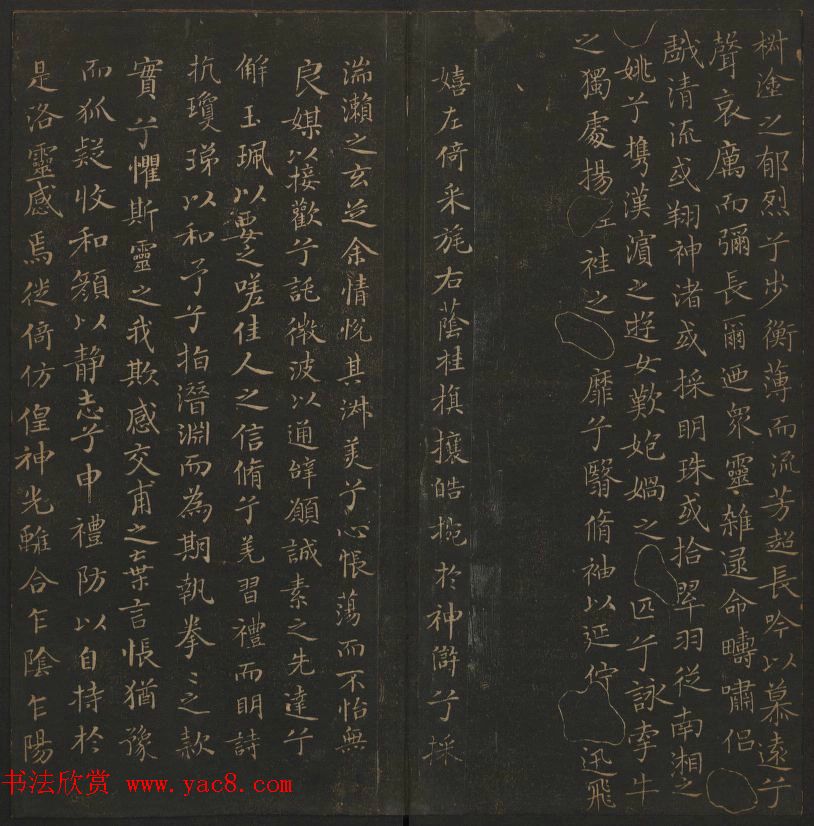 椒塗之郁烈兮步衡薄而流芳超長吟以慕遠兮
聲哀厲而彌長爾迺眾靈雜遝命疇嘯侶
戲清流或翔神渚或採明珠或拾翠羽從南湘之
姚兮攜漢濱之遊女歎匏媧之匹兮詠牽牛
之獨處揚袿之靡兮翳脩袖以延佇迅飛
嬉左倚采旄右蔭桂旗攘皓捥於神滸兮採
湍瀨之玄芝余情悅其淑美兮心悵蕩而不怡無
良媒以接歡兮託微波以通辭願誠素之先達兮
解玉珮以要之嗟佳人之信脩兮羌習禮而明詩
抗瓊珶以和予兮指潛淵而為期執拳〻之款
實兮懼斯靈之我欺感交甫之棄言悵猶豫
而狐疑收和顏以靜志兮申禮防以自持於
是洛靈感焉徙倚仿偟神光離合乍陰乍陽
书法欣赏 www.yac8.com